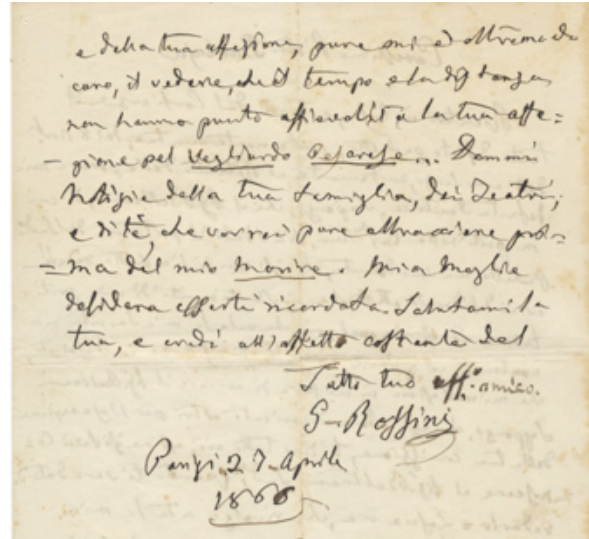 e della tua affezione, pure mi è oltremodo
caro, il vedere, che il tempo e la distanza
non hanno punto affievolita la tua affe=
- zione pel Vegliardo Pesarese.. Dammi
Notizie della tua famiglia, dei Teatri,
e di te, che vorrei pure abbracciare pri=
= ma del mio morire. Mia Moglie
desidera esserti ricordata. Salutami la
tua, e credi all'affetto costante del
Tutto tuo aff.o amico.
G. Rossini
Parigi 27 Aprile
1866